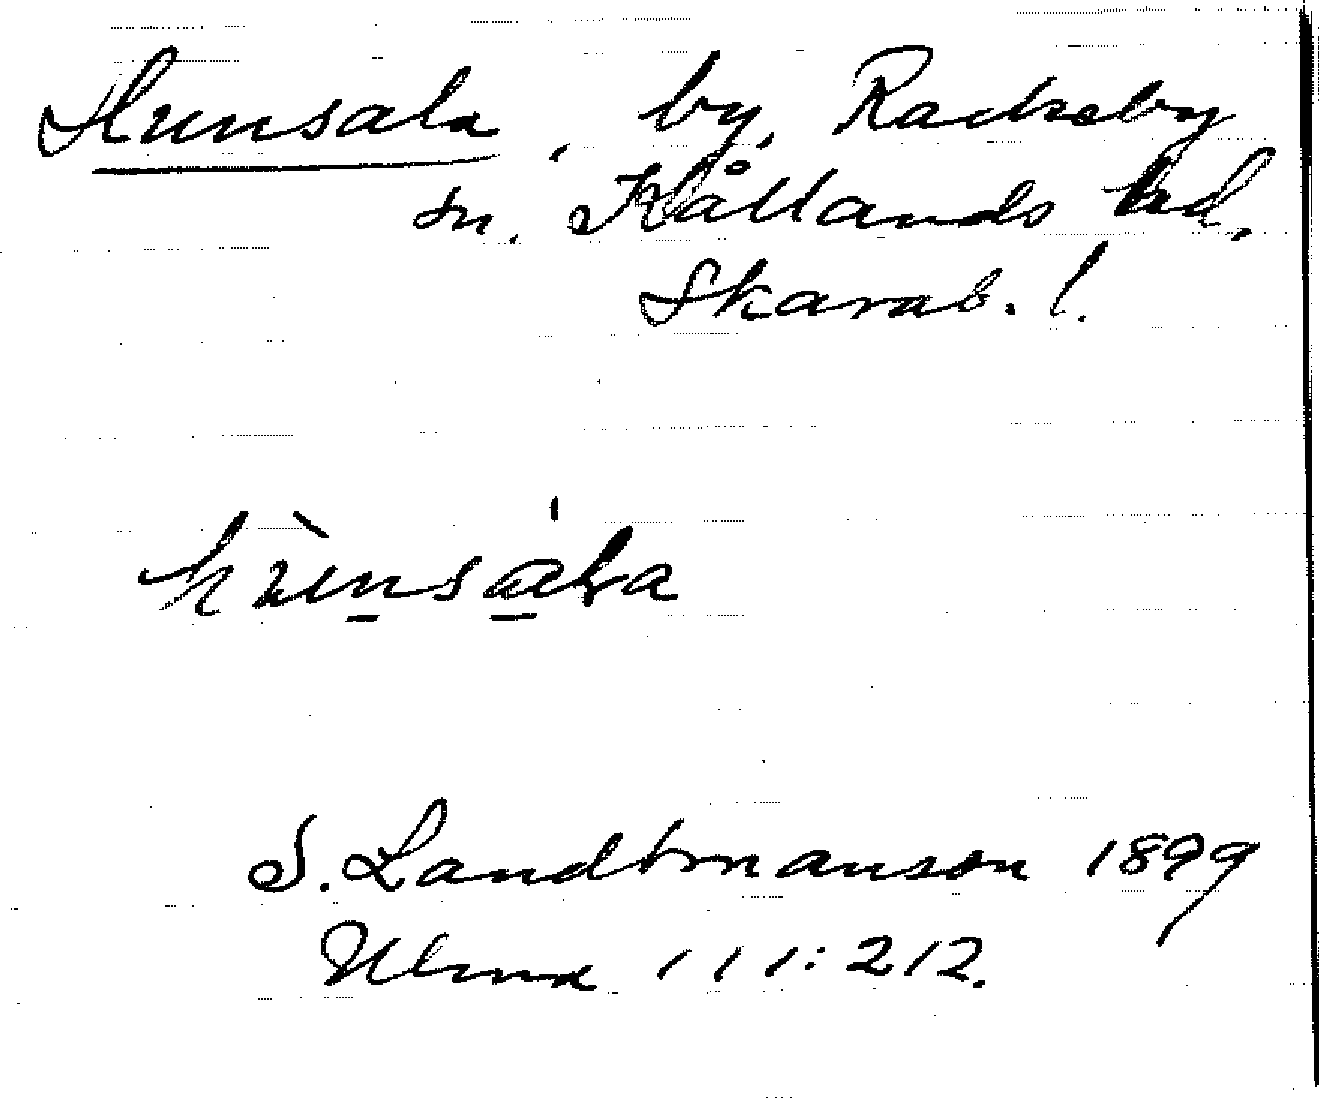 Hunsala, by, Rackeby
sn. Kållands hd.
Skarab. l.
hùnsála
S. Landtmanson 1899
Ulma 111:212.